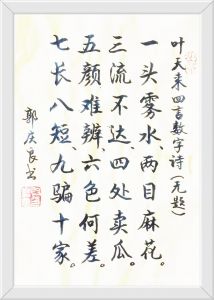 叶天来四言数字诗(无题)
一头雾水、两目麻花。
三流不达、四处卖瓜。
五颜难辨、六色何差。
七长八短、九骗十家。
郭庆良书